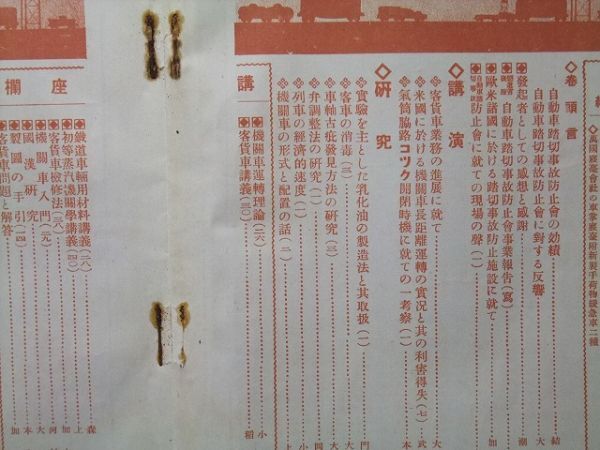 ◇卷頭言
自動車踏切事故防止會の効績 結
自動車踏切事故防止會に對する反響 大
發起者としての感想と感謝 潮
自動車踏切事故防止會事業報告(寫)
歐米諸國に於ける踏切事故防止施設に就て 加
防止會に就ての現場の聲(二)
◇講演
客貨車業務の進展に就て 大
米國に於ける機關車長距離運轉の實況と其の利害得失(七) 武
氣筒脇路コツク開閉時機に就ての一考察(一) 本
◇研究
實驗を主とした乳化油の製造法と其取扱(一) 門
客車の消毒(三) 大
車軸古疵發見方法の研究(三) 大
弁調整法の研究(二) 四
列車の經濟的速度(二) 小
機關車の形式と配置の話(二) 上
講
機關車運轉理論(二六) 小
客貨車講義(三〇) 稻
座
欄
鐵道車輛用材料講義(二八) 森
初等蒸汽機關學講義(四〇) 上
客貨車檢修法(三八) 加
機關車入門(二九) 河
國漢研究 大
製圖の手引(二四) 本
客貨車問題と解答 加